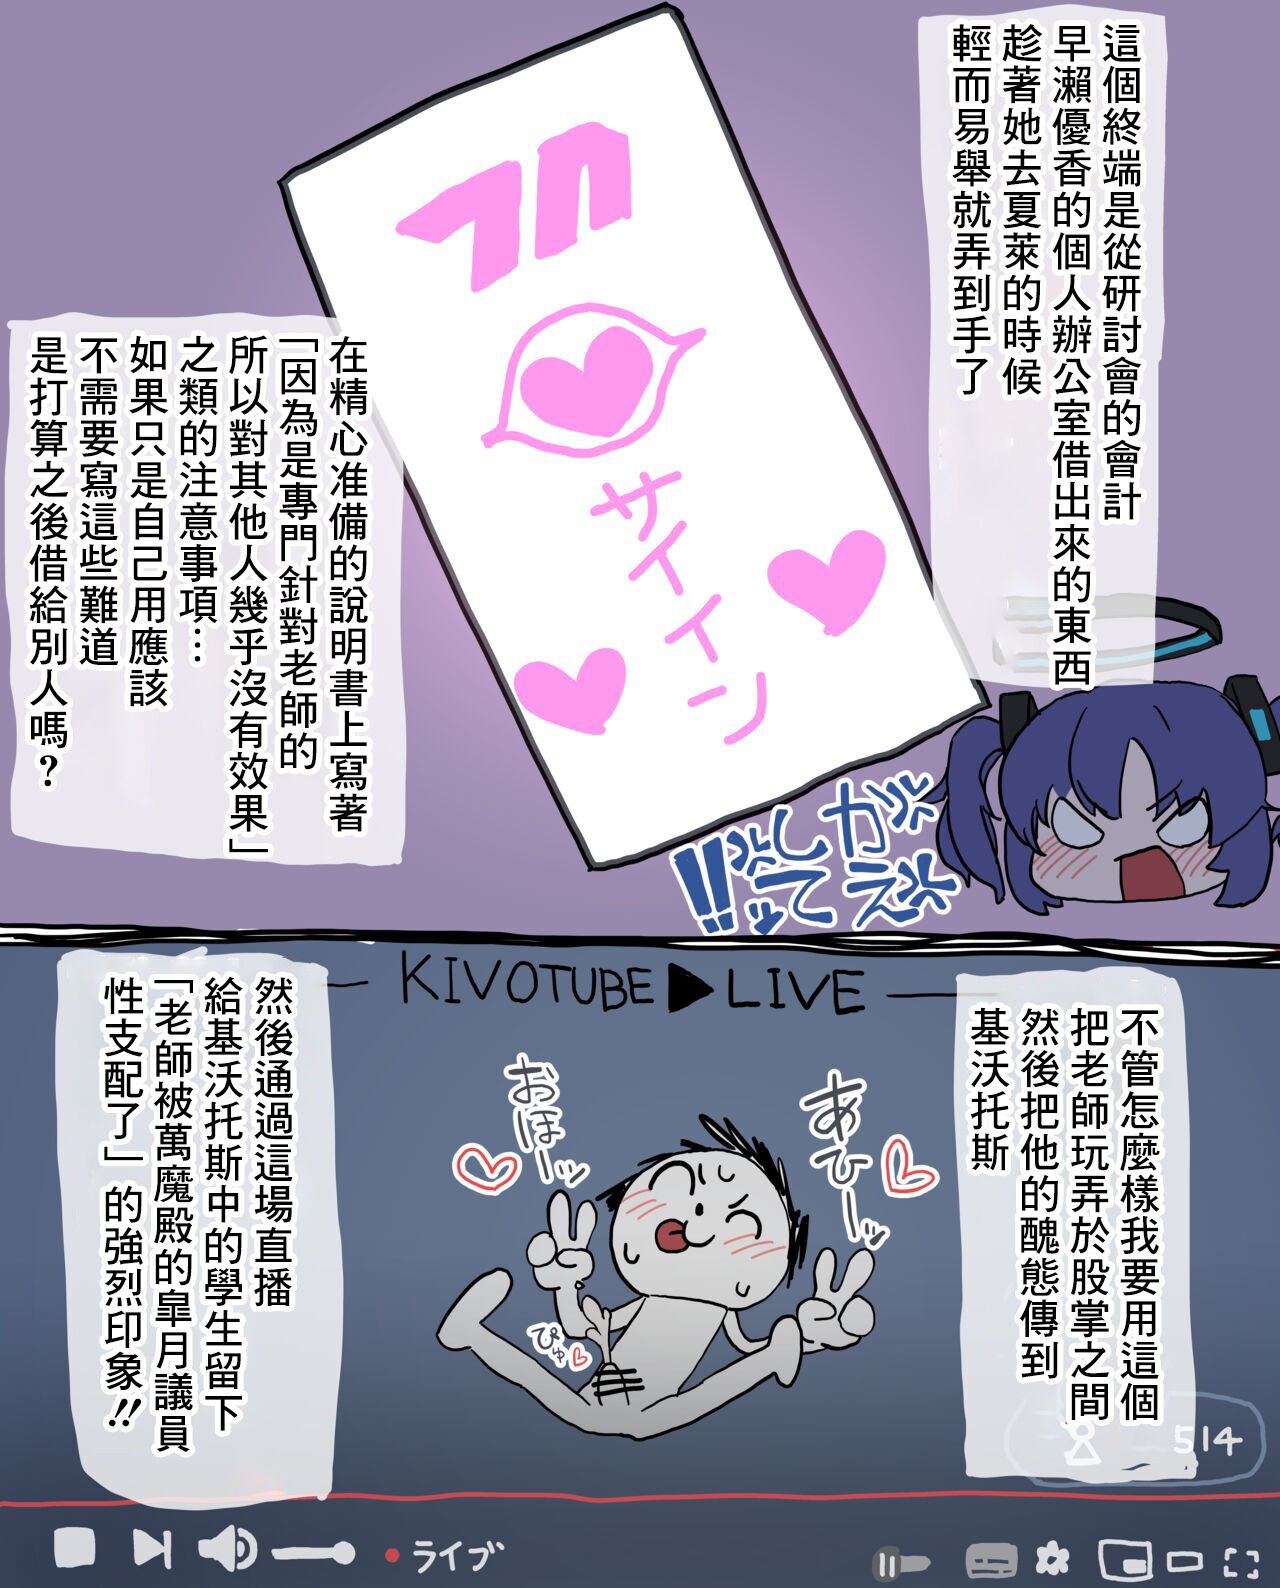 這個終端是從研討會的會計
早瀨優香的個人辦公室借出來的東西
趁著她去夏萊的時候
輕而易舉就弄到手了
サイイン
在精心准備的說明書上寫著
「因為是專門針對老師的
所以對其他人幾乎沒有效果」
之類的注意事項…
如果只是自己用應該
不需要寫這些難道
是打算之後借給別人嗎?
かえ
して
!!
KIVOTUBE▶LIVE
不管怎麼樣我要用這個
把老師玩弄於股掌之間
然後把他的醜態傳到
基沃托斯
あひーッ
おほーッ
ぴゅ
然後通過這場直播
給基沃托斯中的學生留下
「老師被萬魔殿的皐月議員
性支配了」的強烈印象!!
514
ライブ